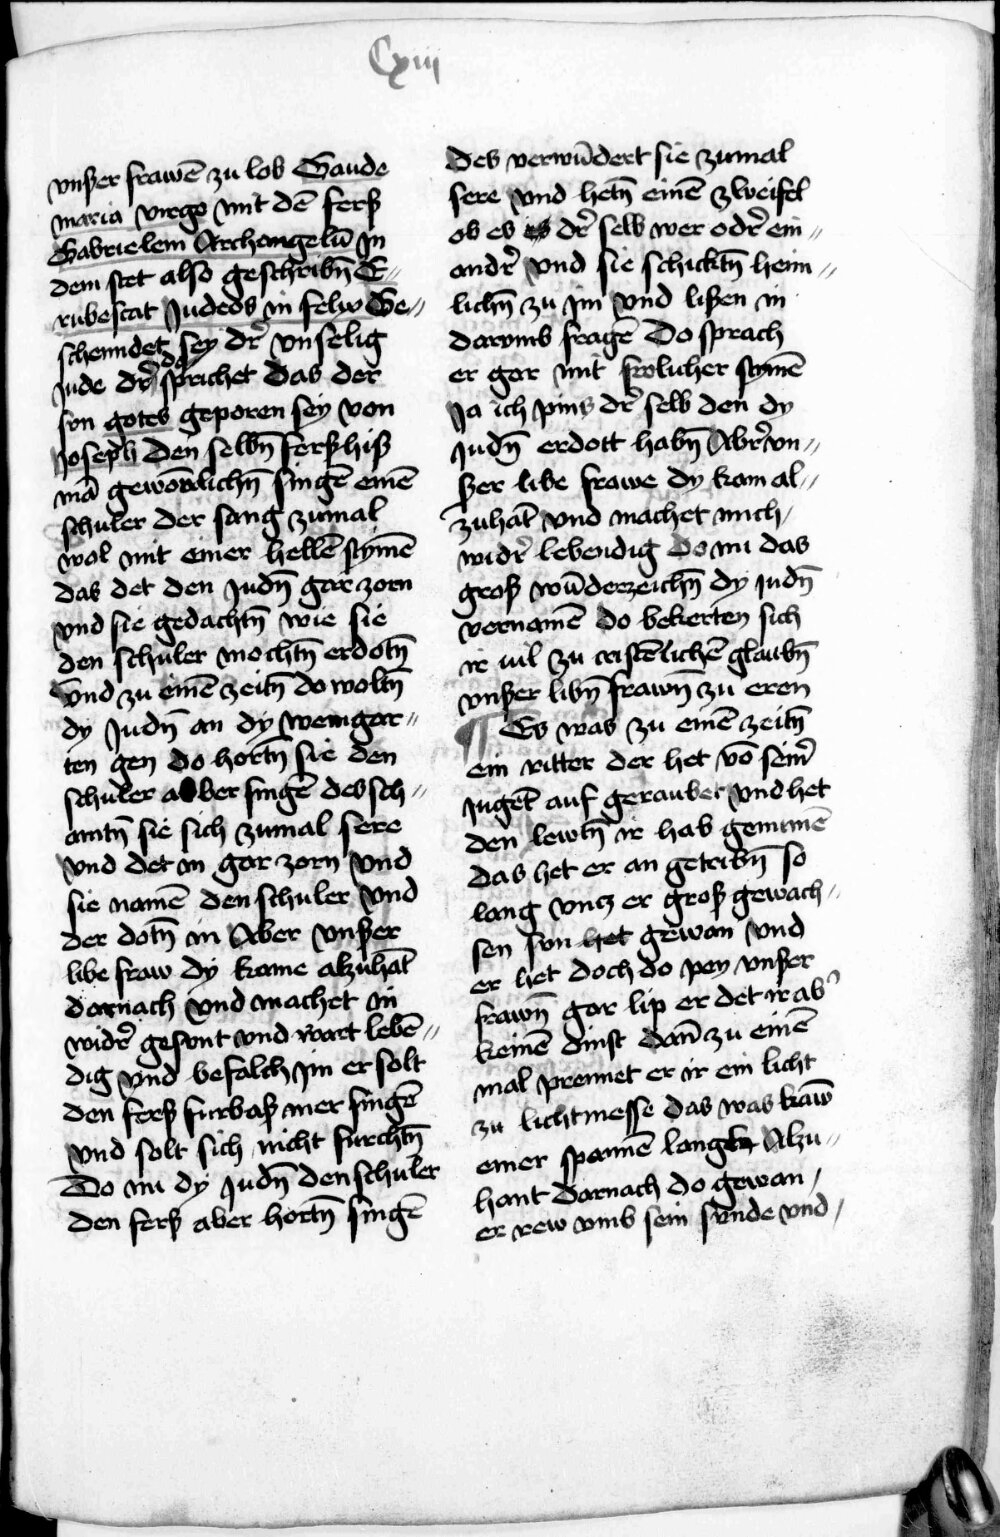 Cxiii
vnßer frawē zu lob Gaude
maria virgo mit dē ferß
Gabrielem Archangelū In
dem stet also geschribn̄ E〃
rubescat Judeus in felix Ge〃
schenndet sey dr̄ vnselig
Jude dr̄ do sprichet das der
sun gotes geporen sey von
Joseph den selbn̄ ferß hiß
mā gewonlichn̄ singē einē
schuler der sang zumal
wol mit einer hellē stymē
das det den Judn̄ gar zorn
vnd sie gedachtn̄ wie sie
den schuler mochtn̄ erdotn̄
vnd zu einē zeitn̄ do woltn̄
dy Judn̄ an dy weingar〃
ten gen do hortn̄ sie den
schuler aber singē des sch〃
amtn̄ sie sich zumal sere
vnd det in gar zorn vnd
sie namē den schuler vnd
der dotn̄ in Aber vnßer
libe fraw dy kame alzuhāt
darnach vnd machet in
widr̄ gesunt vnd wart lebē〃
dig vnd befalch Im er solt
den ferß furbaß mer singē
vnd solt sich nicht furchtn̄
Do nu dy Judn̄ den schuler
den ferß aber hortn̄ singē
des verwūdert sie zumal
sere vnd hetn̄ einē zweifel
ob es dr̄ selb wer odr̄ ein〃
andr̄ vnd sie schicktn̄ heim〃
lichn̄ zu Im vnd lißen in
darvmb fragē Do sprach
er gar mit frolicher stymē
Ja ich pins dr̄ selb den dy
Judn̄ erdott habn̄ Abr̄ vn〃
ßer libe frawe dy kam al〃
zuhāt vnd machet mich
widr̄ lebendig Do nu das
groß wūderzeichn̄ dy Judn̄
vernamē do bekerten sich
ir uil zu cristēlichē glaubn̄
vnßer libn̄ frawn̄ zu eren
¶ Es was zu einē zeitn̄
ein ritter der het vō seinr̄
Jugēt auf geraubet vnd het
den lewtn̄ ir hab genumē
das het er an getribn̄ so
lang vncz er groß gewach〃
sen sun het gewan vnd
er het doch do pey vnßer
frawn̄ gar lip er det ir ab
keinē dinst dan̄ zu einē
mal prennet er ir ein licht
zu lichtmesse das was kaw̄
einer spannē lang Alzu〃
hant darnach do gewan
er rew vmb sein sunde vnd